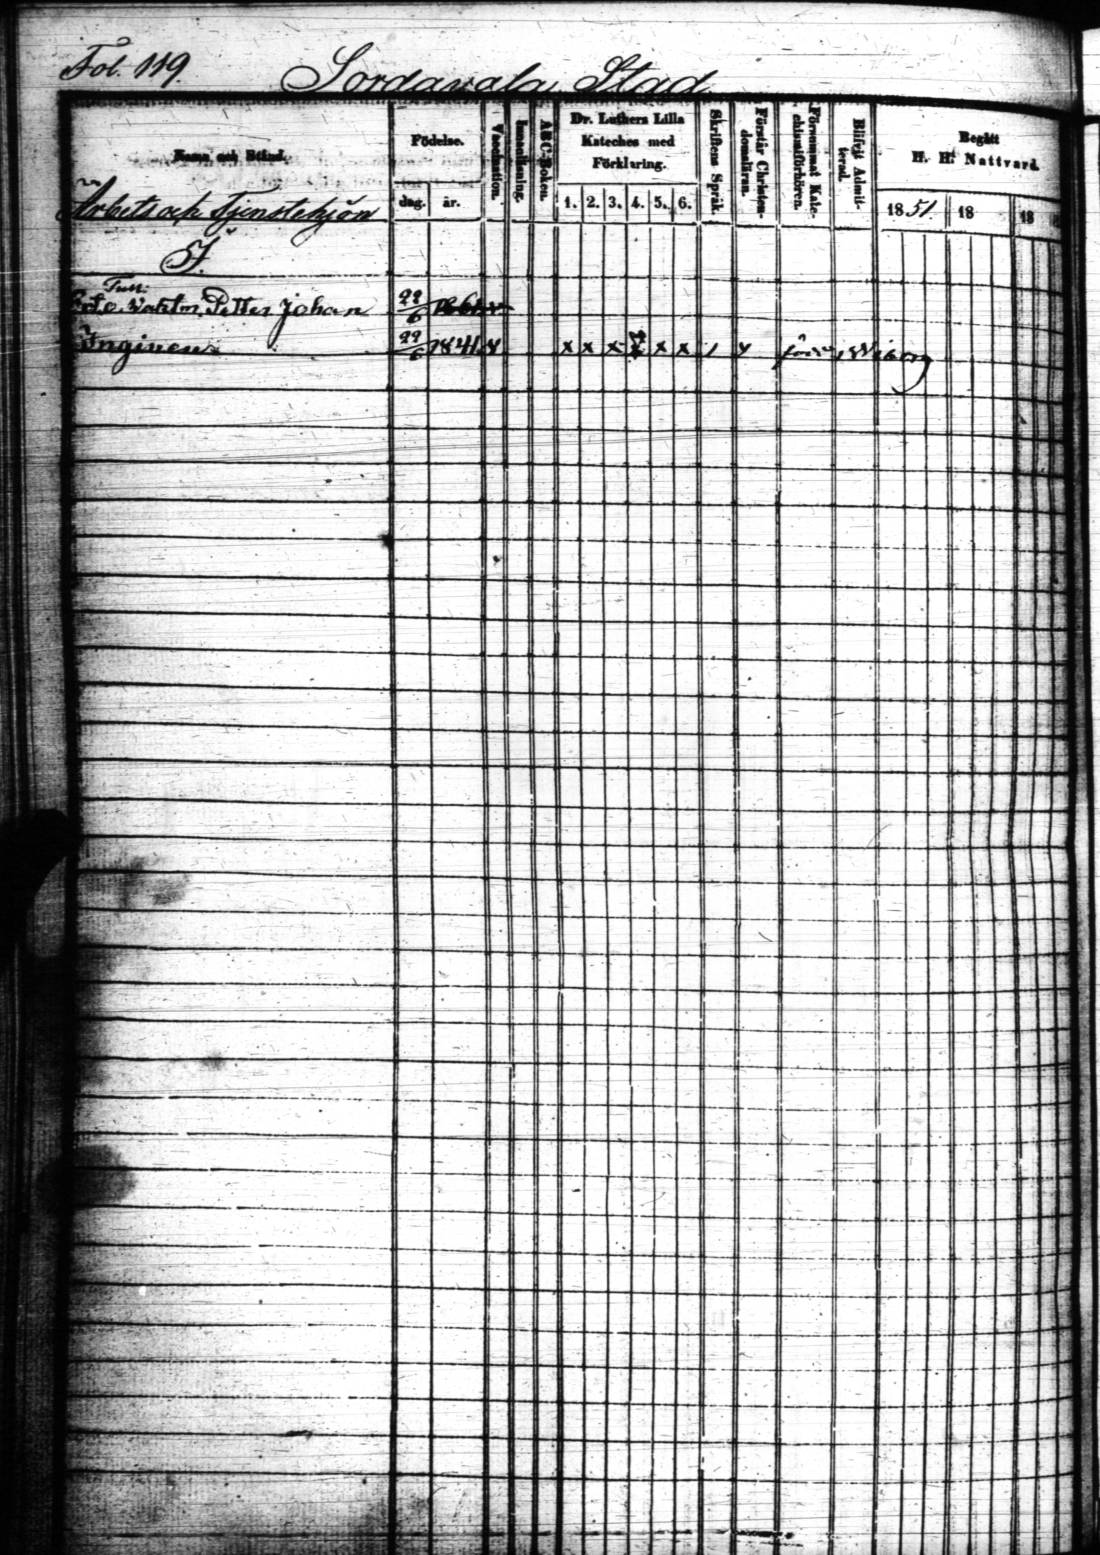 Fol. 119
Sordavala Stad
Namn och Stånd.
Födelse.
dag. år.
Vaccination.
Innanläsning.
ABC-Boken.
Dr. Luthers Lilla
Kateches med
Förklaring.
1. 2. 3. 4. 5. 6.
Skriftens Språk.
Förstår Christen-
domsläran.
Försummat Kate-
chismiförhören.
Blifvit Admit-
terad.
Begått
H. H. Nattvard
1851 18 18
Arbets och Tjenstehjon
J.
Petter Johan 22/6
Inginen 22/6 1841 x x x x x x / Wiborg